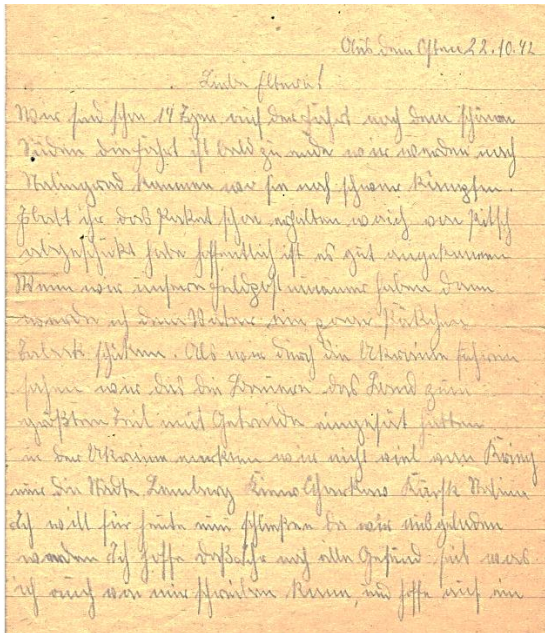 Aus dem Osten 22.10.42
Liebe Eltern!
Wir sind schon 14 Tgen auf der Fahrt nach dem schönen
Süden die Fahrt ist bald zu ende wir werden nach
Stalingrad kommen wo sie noch schwer kämpfen.
Habt ihr das Paket schon erhalten welch von
abgeschikt habe hoffentlich ist es gut angekommen
Wenn wir unsere Feldpostnummer haben dann
werde ich dem Vater ein par Päkchen
Tabak schiken. Als wir durch die Ukraine fuhren
sahen wir das die Bauern das Land zum
größten Teil mit Getreide eingesät hatten
in der Ukraine merkten wir nicht viel vom Krieg
nur die Städte Lemberg Kiew Charkow Kursk
Ich will für heute nun schließen da wir ausgeladen
werden Ich hoffe daß ihr noch alle Gesund seit was
ich auch von mir schreiben kann, und hoffe auf ein